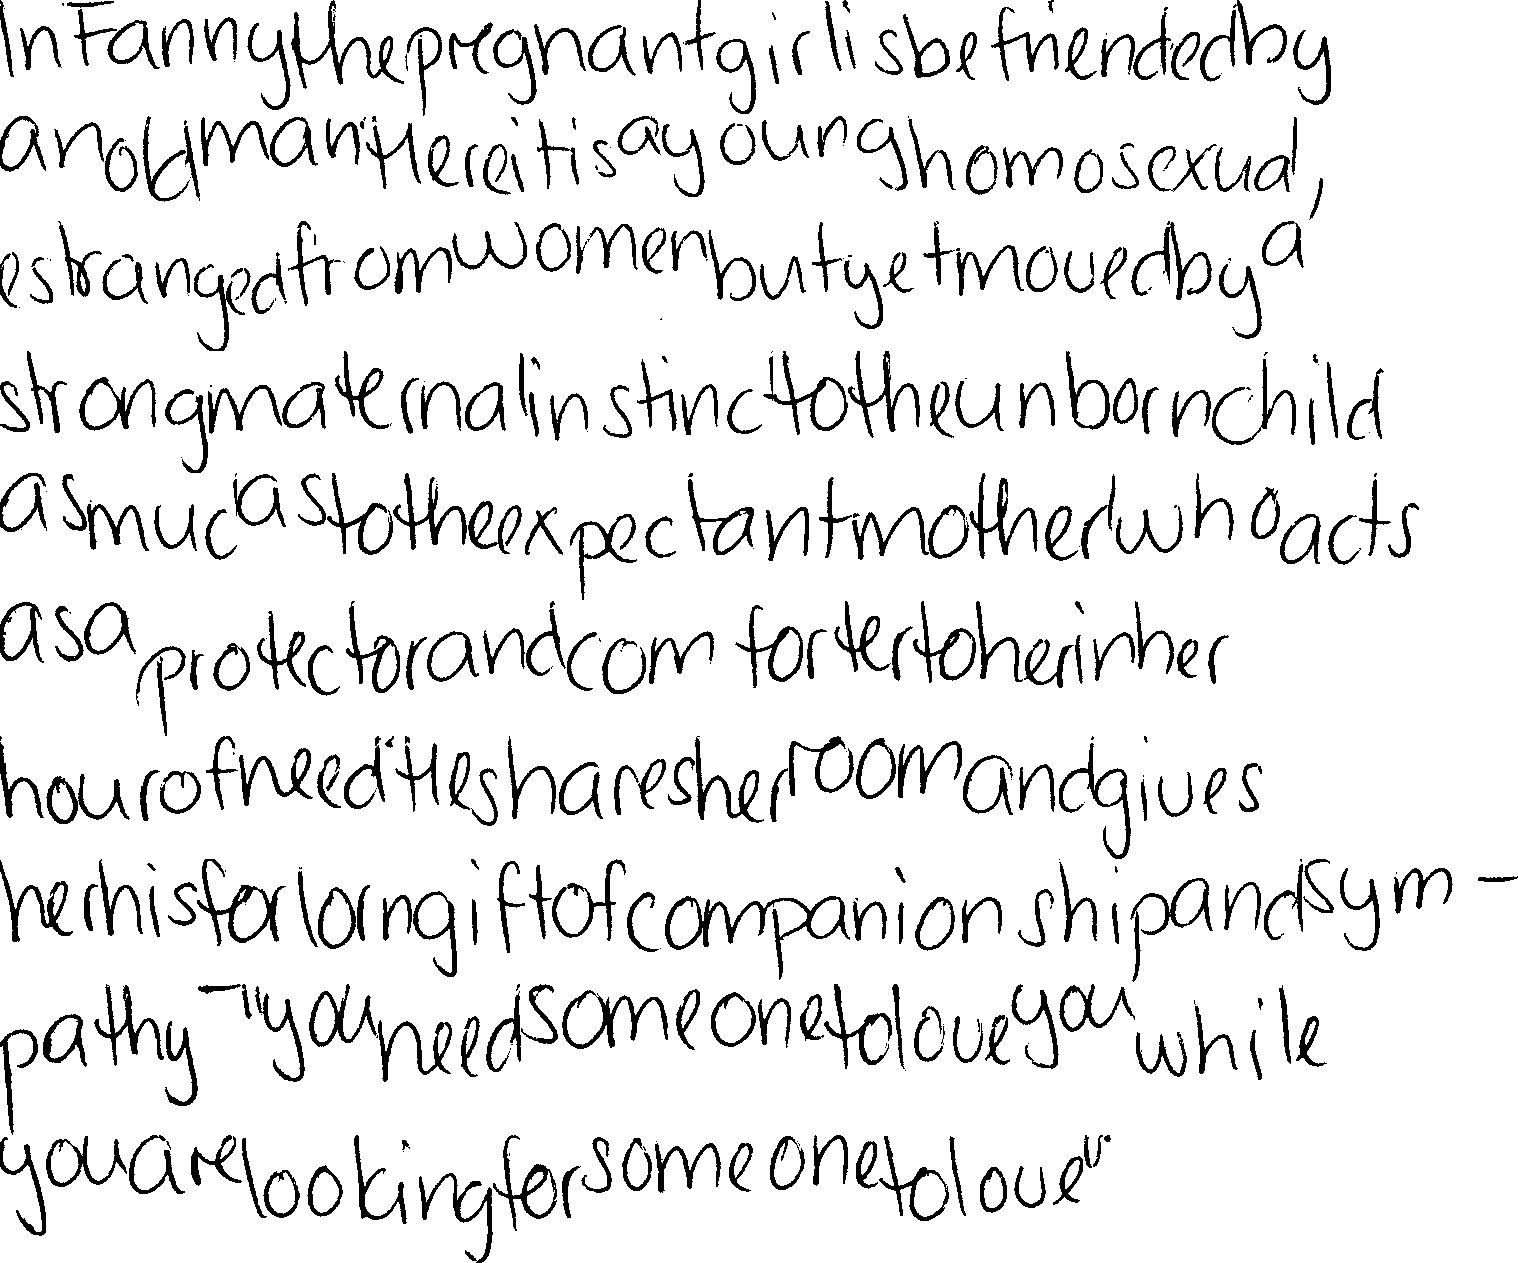 In Fanny the pregnant girl is befriended by
an old man. Here it is a young homosexual,
estranged from women but yet moved by a
strong maternal instinct to the unborn child
as muc as to the expectant mother, who acts
as a protector and comforter to her in her
hour of need. He shares her room and gives
her his forlorn gift of companionship and sym-
pathy - "you need someone to love you while
you are looking for someone to love".